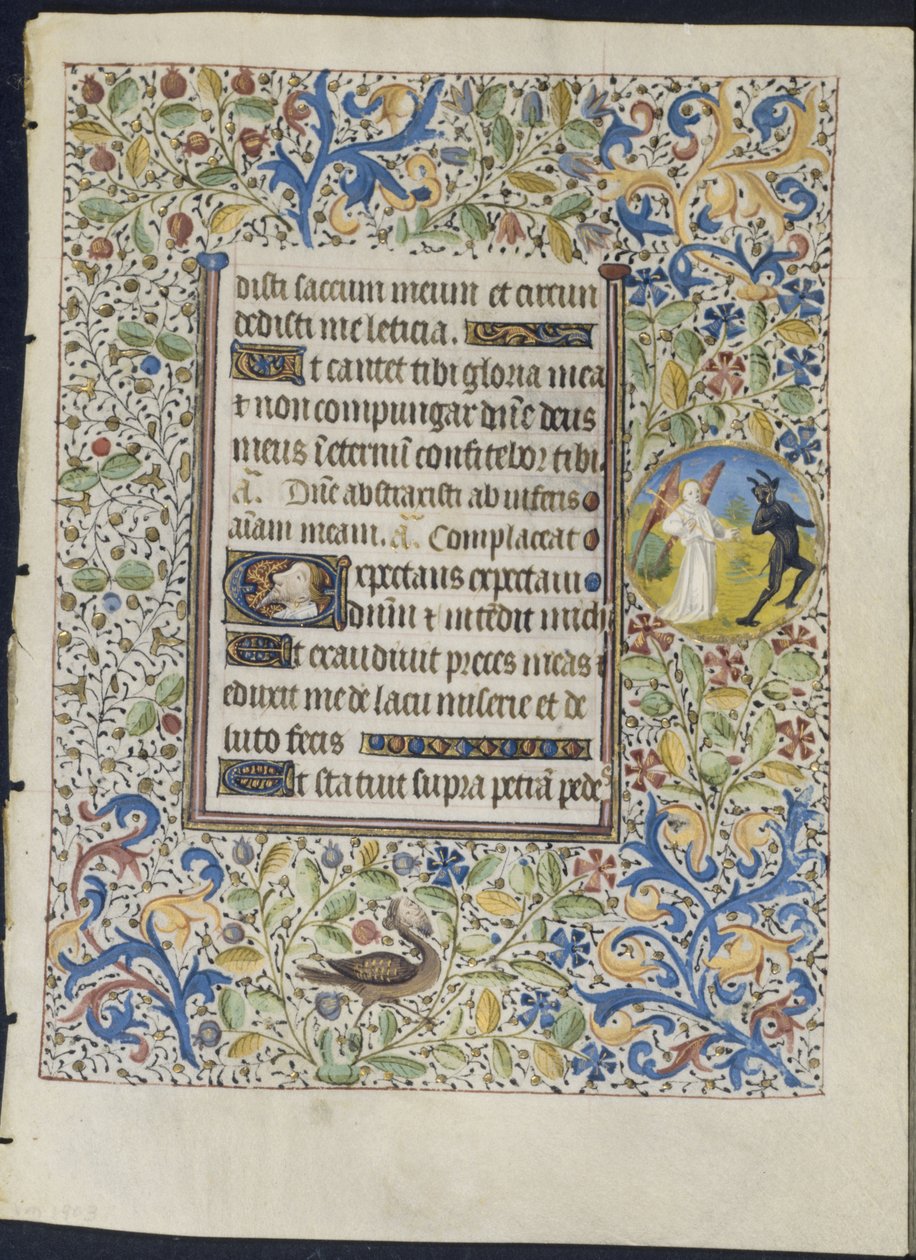 disti saccum meum et circun
dedisti me leticia.
Ut cantet tibi gloria mea
⁊ non compungar dn̄e deus
meus ī eternū confitebor tibi.
a᷑. Dn̄e abstraxisti ab inferis
aīam meam. a᷑. Complaceat
Expectans expectaui
dnm̄ ⁊ intēdit michi
Et exaudiuit preces meas ⁊
eduxit me de lacu miserie et de
luto fecis
Et statuit supra petrā pedes